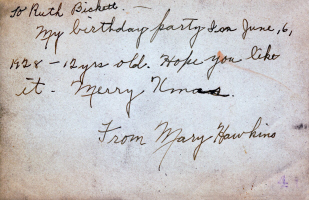 To Ruth Bickett. —
My birthday party on June, 6,
1928 - 12 yrs old. Hope you like
it. Merry Xmas.
From Mary Hawkins